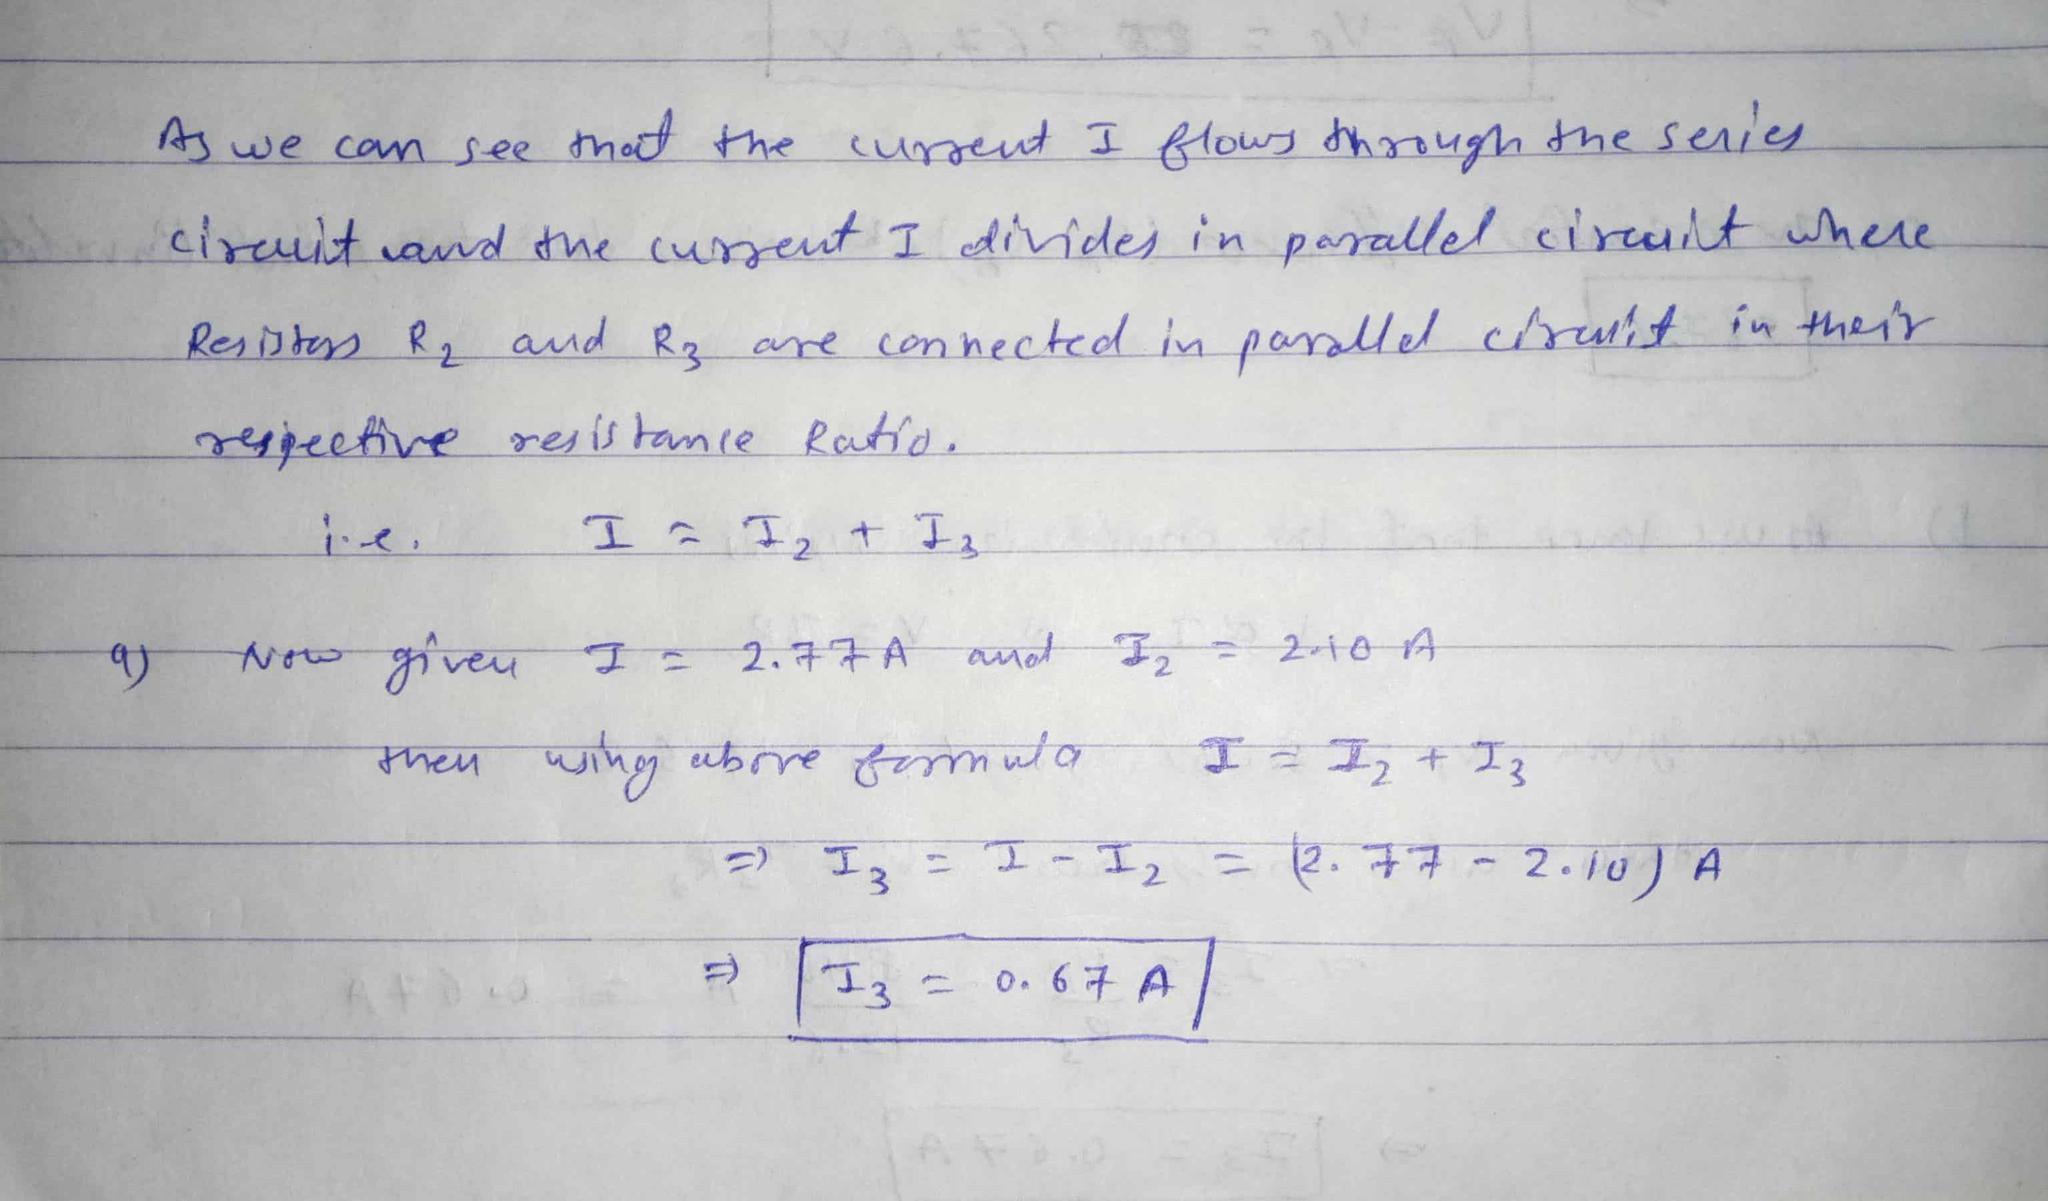 As we can see that the current I flows through the series
circuit and the current I divides in parallel circuit where
Resistors R2 and R3 are connected in parallel circuit in their
respective resistance Ratio.
i.e. I = I2 + I3
a) Now given I = 2.77 A and I2 = 2.10 A
then using above formula I = I2 + I3
=> I3 = I - I2 = (2.77 - 2.10) A
=> I3 = 0.67 A